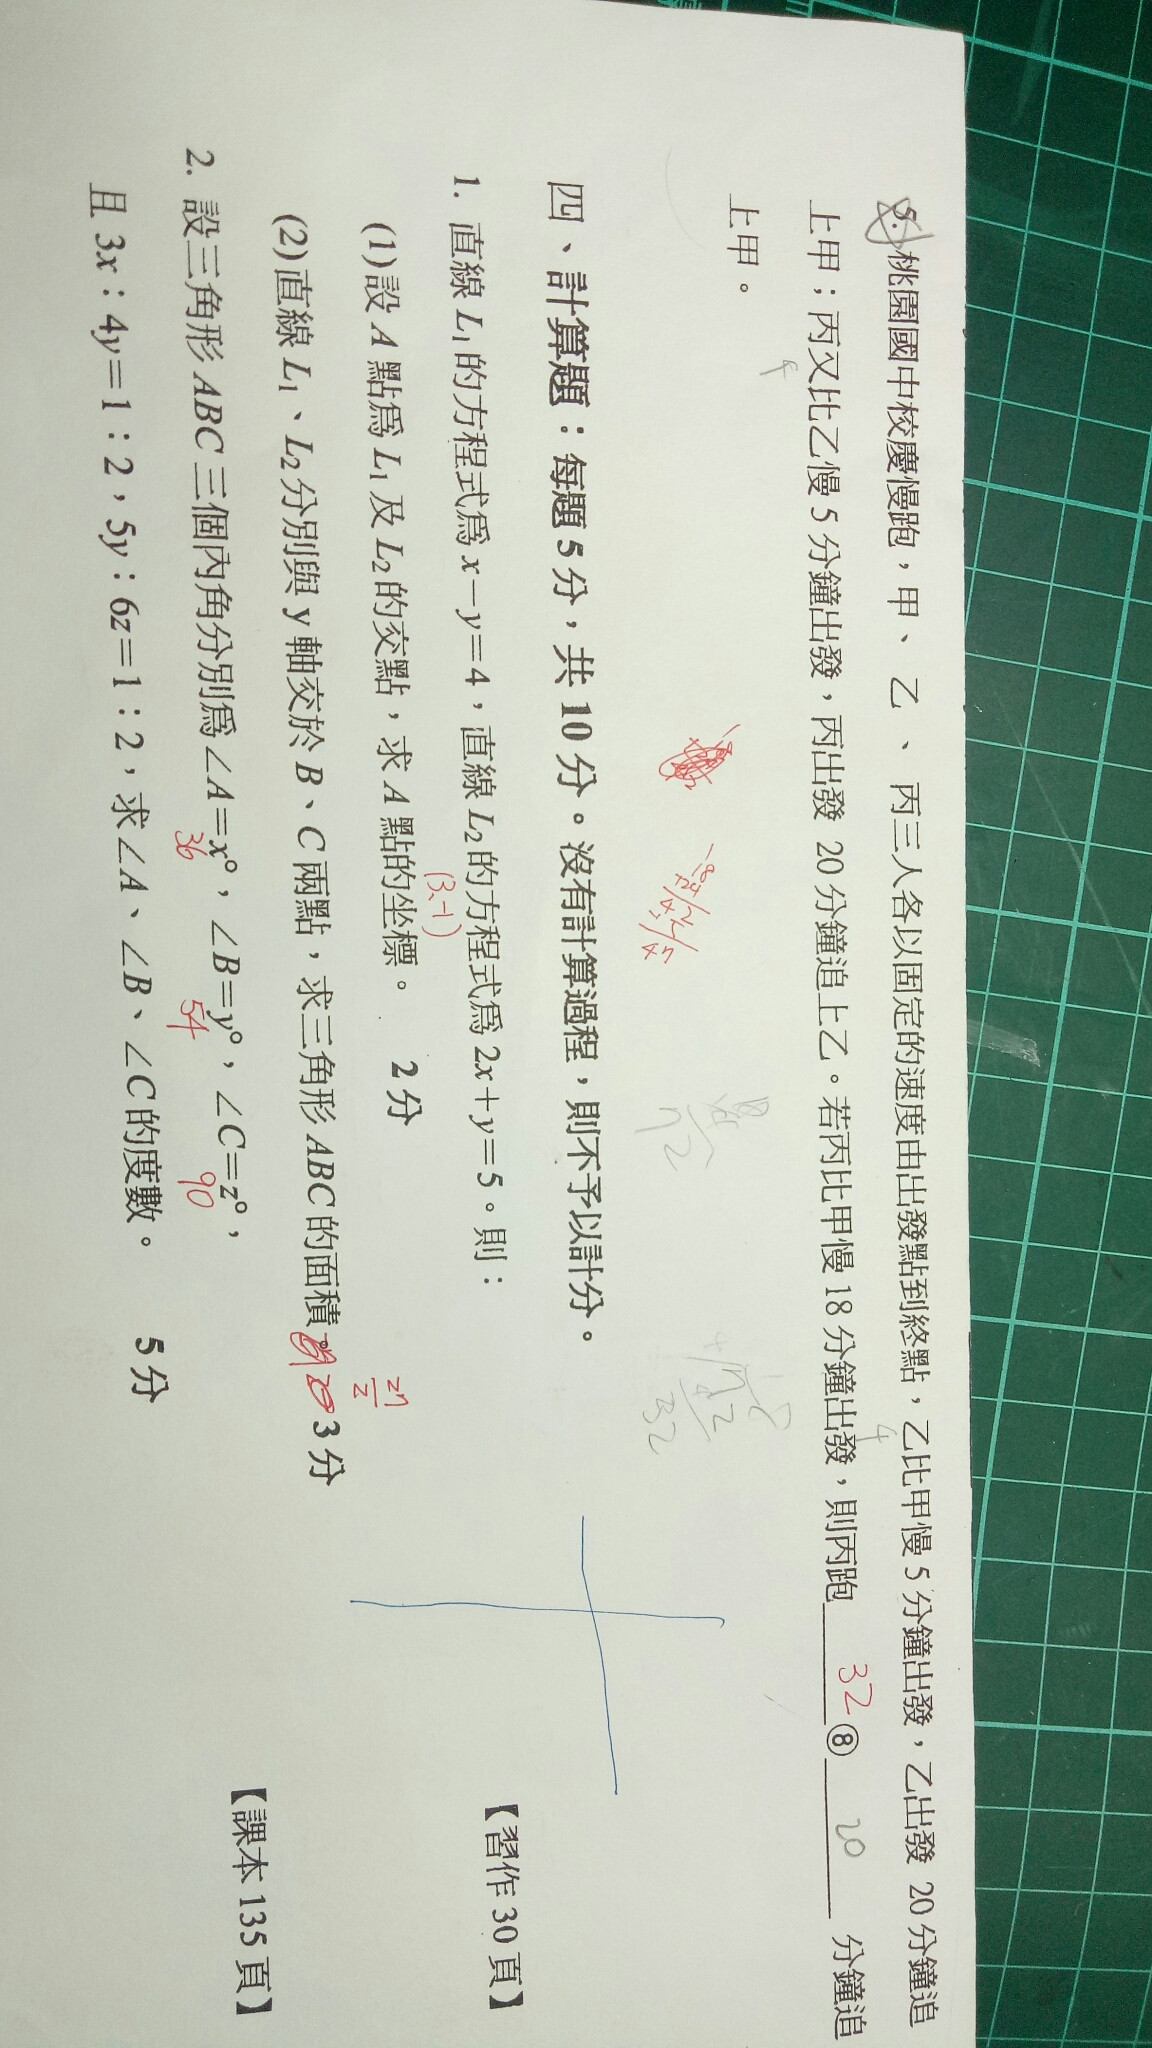 5. 桃園國中校慶慢跑，甲、乙、丙三人各以固定的速度由出發點到終點，乙比甲慢5分鐘出發，乙出發 20分鐘追
上甲；丙又比乙慢5分鐘出發，丙出發 20分鐘追上乙。若丙比甲慢18分鐘出發，則丙跑 32 ⑧ 20 分鐘追
上甲。
4
4
18
+24
42
+5
47
四、計算題：每題5分，共10分。沒有計算過程，則不予以計分。
1. 直線L₁的方程式為x－y＝4，直線L₂的方程式為2x＋y＝5。則： 【習作30頁】
(3,-1)
(1)設A點為L₁及L₂的交點，求A點的坐標。 2分
27/2
(2)直線L₁、L₂分別與y軸交於B、C兩點，求三角形ABC的面積。 3分
2. 設三角形ABC三個內角分別為∠A＝x°，∠B＝y°，∠C＝z°， 【課本135頁】
36 54 90
且3x：4y＝1：2，5y：6z＝1：2，求∠A、∠B、∠C的度數。 5分